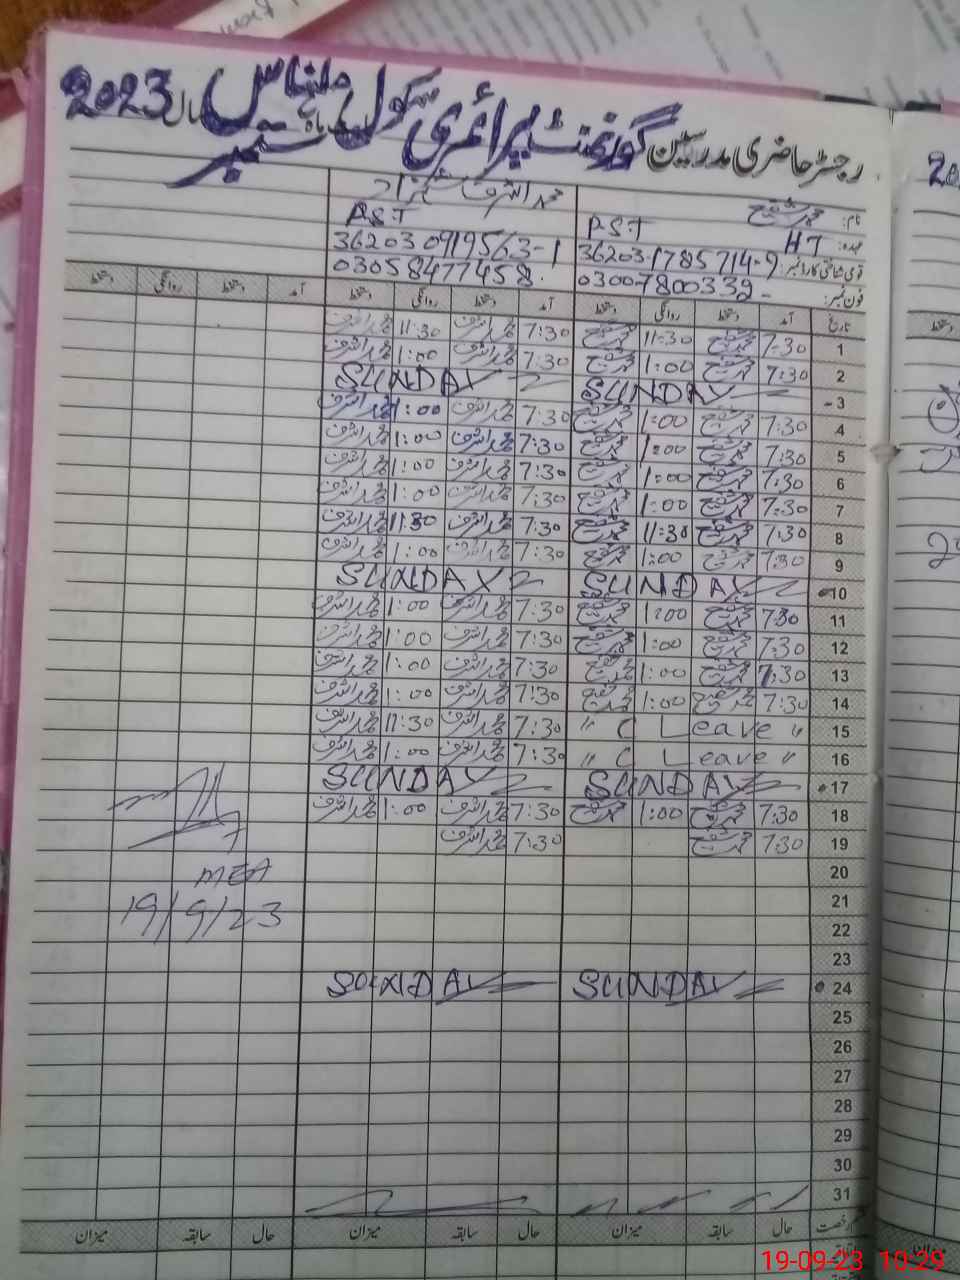 رجسٹر حاضری مدرسین گورنمنٹ پرائمری سکول بابت ماہ ستمبر سال 2023
نام: محمد شفیع محمد اشرف
عہدہ: HT P.S.T P.S.T
قومی شناختی کارڈ نمبر: 36203-1785714-9 36203 0919563-1
فون نمبر: 03007800332 03058477458
تاریخ آمد دستخط روانگی دستخط آمد دستخط روانگی دستخط آمد دستخط روانگی دستخط
1 7:30 محمد شفیع 11:30 محمد شفیع 7:30 محمد اشرف 11:30 محمد اشرف
2 7:30 محمد شفیع 1:00 محمد شفیع 7:30 محمد اشرف 1:00 محمد اشرف
3 SUNDAY SUNDAY
4 7:30 محمد شفیع 1:00 محمد شفیع 7:30 محمد اشرف 1:00 محمد اشرف
5 7:30 محمد شفیع 1:00 محمد شفیع 7:30 محمد اشرف 1:00 محمد اشرف
6 7:30 محمد شفیع 1:00 محمد شفیع 7:30 محمد اشرف 1:00 محمد اشرف
7 7:30 محمد شفیع 1:00 محمد شفیع 7:30 محمد اشرف 1:00 محمد اشرف
8 7:30 محمد شفیع 11:30 محمد شفیع 7:30 محمد اشرف 11:30 محمد اشرف
9 7:30 محمد شفیع 1:00 محمد شفیع 7:30 محمد اشرف 1:00 محمد اشرف
10 SUNDAY SUNDAY
11 7:30 محمد شفیع 1:00 محمد شفیع 7:30 محمد اشرف 1:00 محمد اشرف
12 7:30 محمد شفیع 1:00 محمد شفیع 7:30 محمد اشرف 1:00 محمد اشرف
13 7:30 محمد شفیع 1:00 محمد شفیع 7:30 محمد اشرف 1:00 محمد اشرف
14 7:30 محمد شفیع 1:00 محمد شفیع 7:30 محمد اشرف 1:00 محمد اشرف
15 " C Leave " 7:30 محمد اشرف 11:30 محمد اشرف
16 " C Leave " 7:30 محمد اشرف 1:00 محمد اشرف
17 SUNDAY SUNDAY
18 7:30 محمد شفیع 1:00 محمد شفیع 7:30 محمد اشرف 1:00 محمد اشرف
19 7:30 محمد شفیع 7:30 محمد اشرف
20 MEA
21 19/9/23
22
23
24 SUNDAY SUNDAY
25
26
27
28
29
30
31
قسم رخصت حال سابقہ میزان حال سابقہ میزان حال سابقہ میزان
19-09-23 10:29